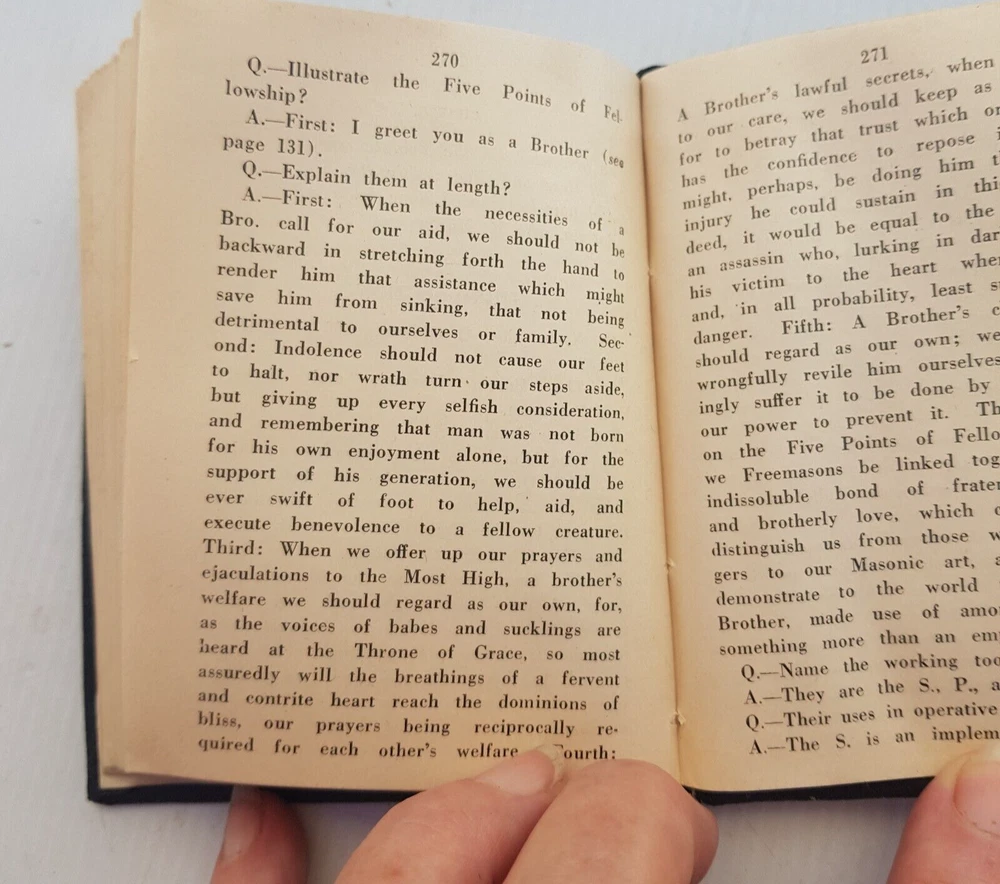 270
Q.—Illustrate the Five Points of Fel-
lowship?
A.—First: I greet you as a Brother (see
page 131).
Q.—Explain them at length?
A.—First: When the necessities of a
Bro. call for our aid, we should not be
backward in stretching forth the hand to
render him that assistance which might
save him from sinking, that not being
detrimental to ourselves or family. Sec-
ond: Indolence should not cause our feet
to halt, nor wrath turn our steps aside,
but giving up every selfish consideration,
and remembering that man was not born
for his own enjoyment alone, but for the
support of his generation, we should be
ever swift of foot to help, aid, and
execute benevolence to a fellow creature.
Third: When we offer up our prayers and
ejaculations to the Most High, a brother's
welfare we should regard as our own, for,
as the voices of babes and sucklings are
heard at the Throne of Grace, so most
assuredly will the breathings of a fervent
and contrite heart reach the dominions of
bliss, our prayers being reciprocally re-
quired for each other's welfare. Fourth:
271
A Brother's lawful secrets, when
to our care, we should keep as
for to betray that trust which
has the confidence to repose
might, perhaps, be doing him
injury he could sustain in
deed, it would be equal to the
an assassin who, lurking in
his victim to the heart
and, in all probability, least
danger. Fifth: A Brother's
should regard as our own; we
wrongfully revile him ourselves
ingly suffer it to be done by
our power to prevent it.
on the Five Points of
we Freemasons be linked
indissoluble bond of
and brotherly love, which
distinguish us from those
gers to our Masonic art,
demonstrate to the world
Brother, made use of
something more than an
Q.—Name the working
A.—They are the S., P.,
Q.—Their uses in operative
A.—The S. is an